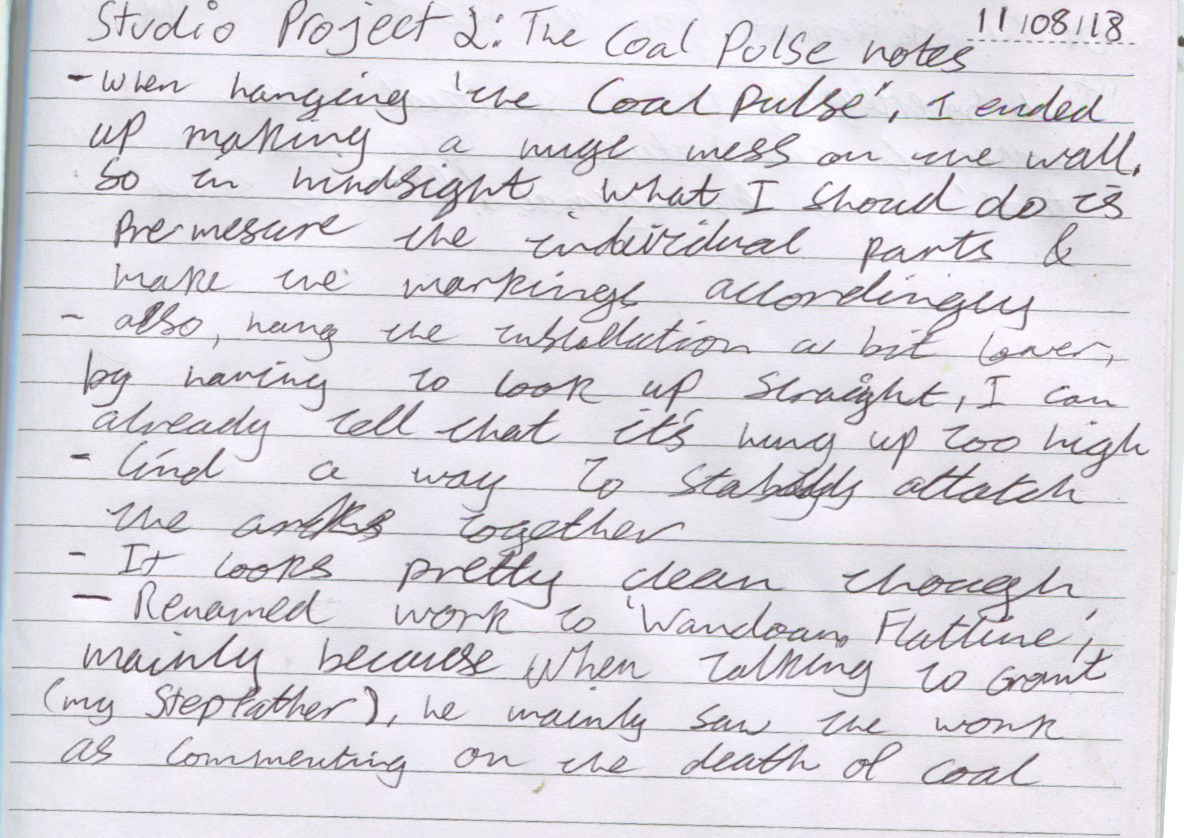 Studio Project 2: The Coal Pulse notes 11/08/18
- When hanging 'the Coal Pulse', I ended
up making a huge mess on the wall.
So in hindsight what I shoud do is
pre-mesure the individual parts &
make the markings accordingly
- also, hang the installation a bit lower,
by having to look up straight, I can
already tell that it's hung up too high
- find a way to stabily attatch
the together
- It looks pretty clean though
- Renamed work to 'Wandoan Flatline',
mainly because when talking to Grant
(my Stepfather), he mainly saw the work
as commenting on the death of coal